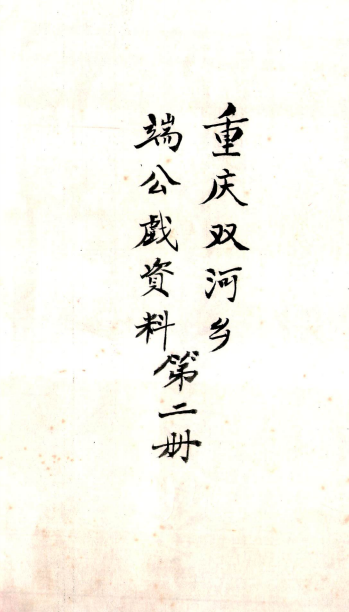 重庆双河乡
端公戲資料
第二册